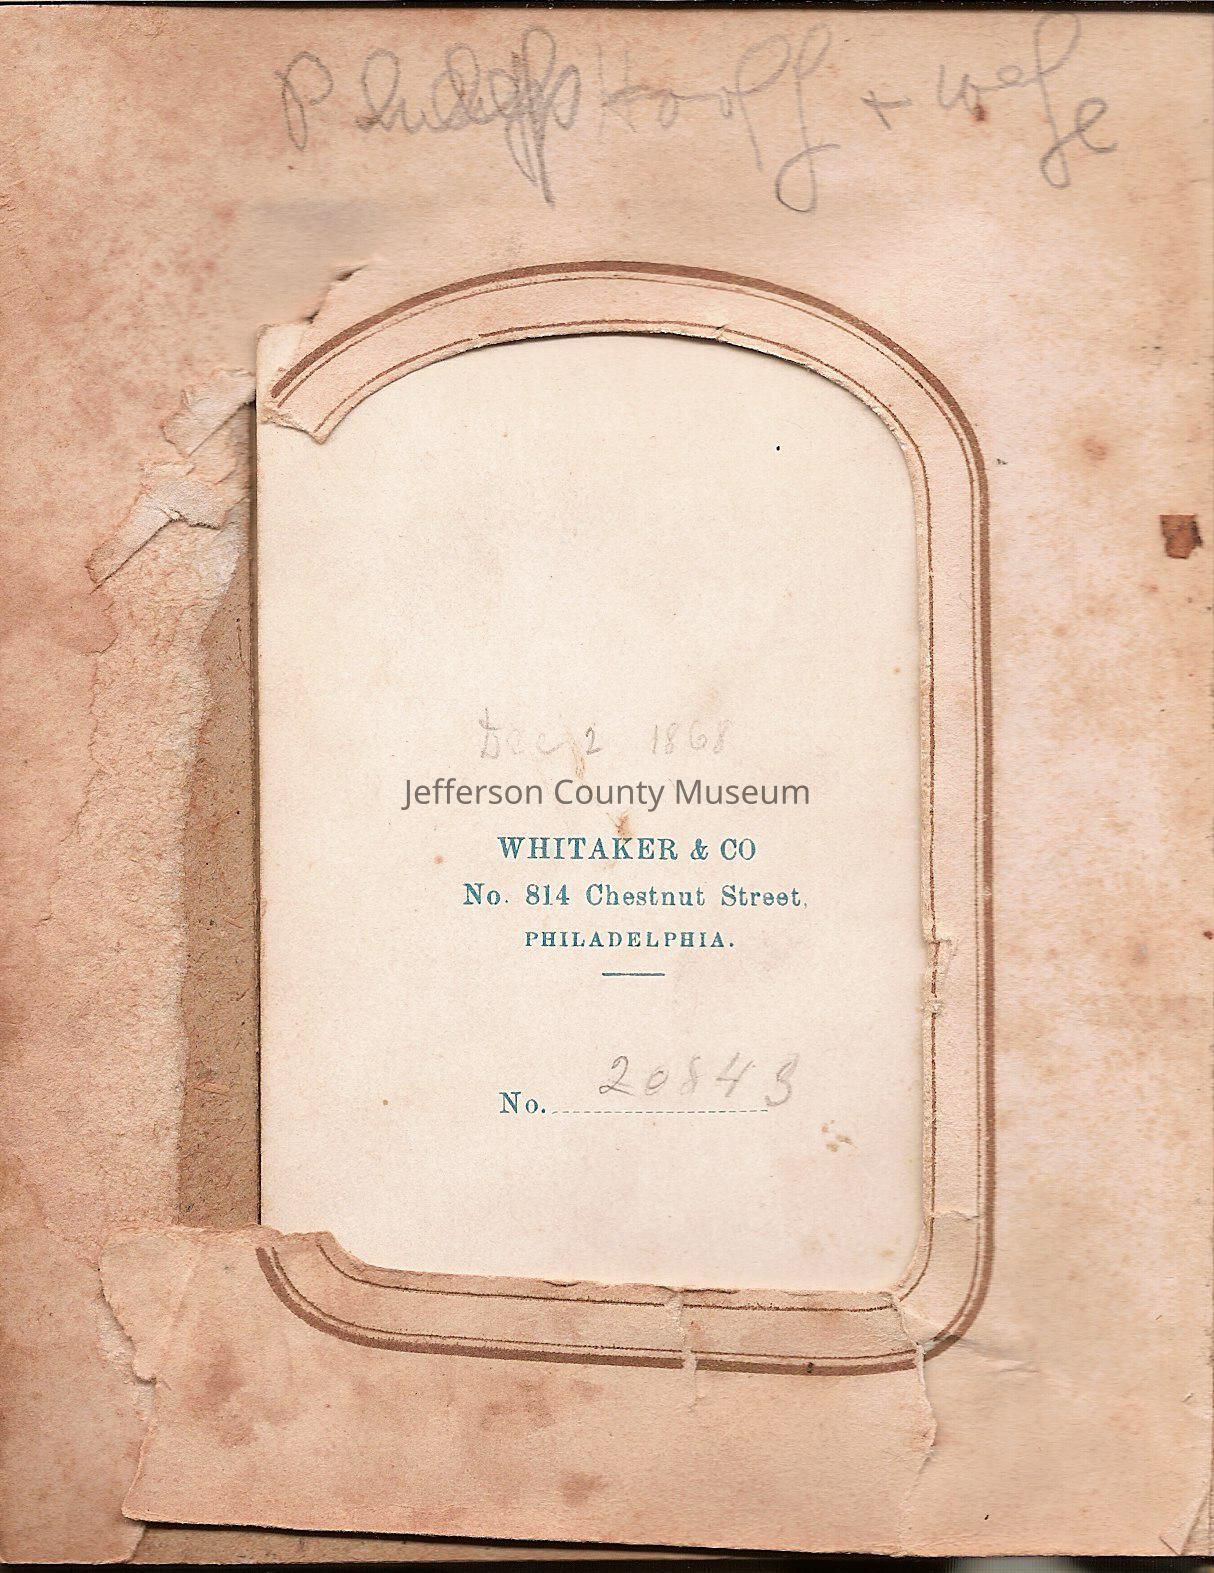 Philip Hooff + wife
Dec 2 1868
Jefferson County Museum
WHITAKER & CO
No. 814 Chestnut Street,
PHILADELPHIA.
No. 20843